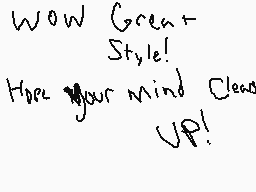 WOW Great
Style!
Hope your mind Clears
UP!